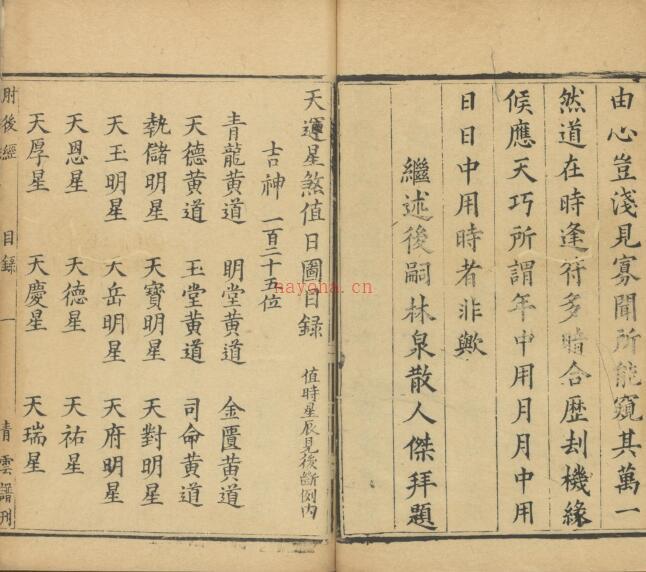 由心豈淺見寡聞所能窺其萬一
然道在時逢符多暗合歷刦機緣
候應天巧所謂年中用月月中用
日日中用時者非歟
繼述後嗣林泉散人傑拜題
天運星煞值日圖目録
值時星辰見後斷例内
吉神一百二十五位
青龍黄道 明堂黄道 金匱黄道
天德黄道 玉堂黄道 司命黄道
執儲明星 天寶明星 天對明星
天王明星 天岳明星 天府明星
天恩星 天德星 天祐星
天厚星 天慶星 天瑞星
肘後經 目録 一 青雲譜刊
nayona.cn